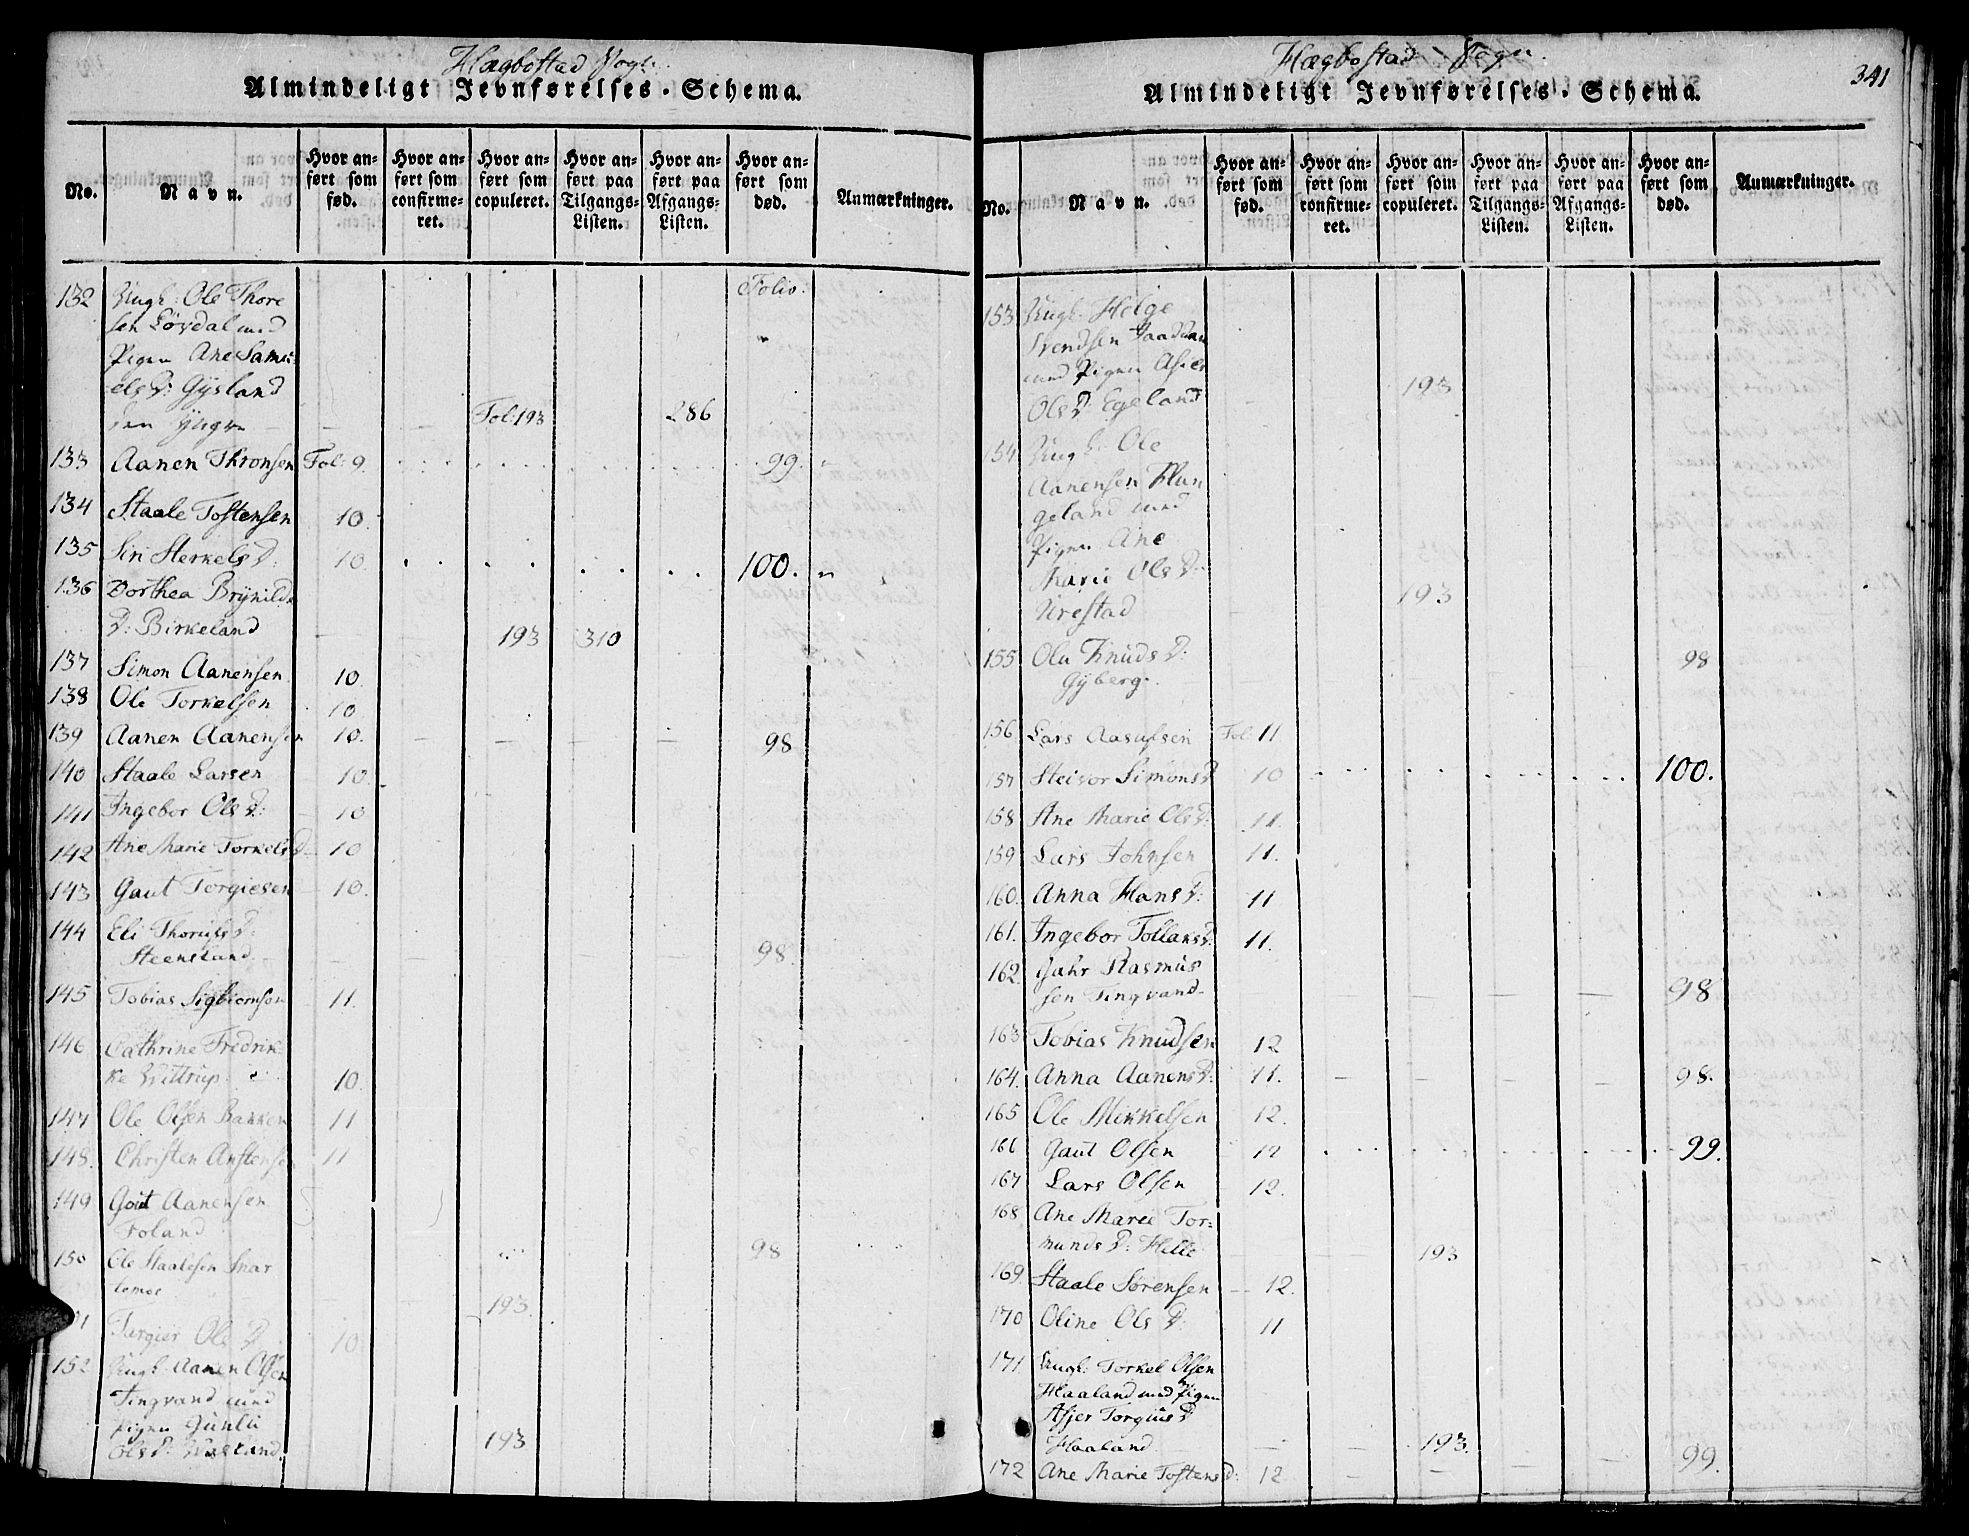 Hægbostad Sogn.
Almindeligt Jevnførelses-Schema.
No.
Navn.
Hvor anført som fød.
Hvor anført som confirmeret.
Hvor anført som copuleret.
Hvor anført paa Tilgangs-Listen.
Hvor anført paa Afgangs-Listen.
Hvor anført som død.
Anmærkninger.
Folio.
132 Ungk: Ole Thore
sen Løvdal med
Pigen Ane Samu-
els D: Gysland
den Yngre Fol: 193 286
133 Aanen Thronsen Fol: 9. 99.
134 Staale Tostensen 10.
135 Siri Sterkels D: 10. 100.
136 Dorthea Brynilds
D: Birkeland 193 310
137 Simon Aanensen 10.
138 Ole Torkelsen 10
139 Aanen Aanensen 10. 98
140 Staale Larsen 10.
141 Ingebor Ols D: 10
142 Ane Marie Torkels D 10
143 Gaut Torgiesen 10.
144 Eli Thoruls D:
Steensland 98.
145 Tobias Sigbiørnsen 11.
146 Cathrine Fredrik-
ke Wittrup 10.
147 Ole Olsen Bakken 11
148. Christen Anstensen 11
149 Gout Aanensen
Foland 98
150 Ole Staalesen Snar
temoe 193.
Tørgier Ols D. 10
152 Ungk: Aanen Olsen
Tingvand med
Pigen Gunli
Ols D: 193
Hægbostad Sogn.
341
Almindeligt Jevnførelses-Schema.
No.
Navn.
Hvor anført som fød.
Hvor anført som confirmeret.
Hvor anført som copuleret.
Hvor anført paa Tilgangs-Listen.
Hvor anført paa Afgangs-Listen.
Hvor anført som død.
Anmærkninger.
153 Ungk. Helge
Svendsen
med Pigen Asier
Ols D. Egeland 193
154 Ungk. Ole
Aanensen Klun
geland med
Pigen Ane
Marie Ols D:
Urestad 193
155 Olu Knuds D:
Gyberg. 98
156 Lars Aasulsen Fol: 11
157 Steivor Simons D 10 100.
158 Ane Marie Ols D: 11.
159 Lars Johnsen 11.
160. Anna Hans D: 11
161. Ingebor Tollaks D: 11.
162. Gahr Rasmus
sen Tingvand 98
163 Tobias Knudsen 12
164. Anna Aanens D: 11. 98.
165 Ole Mikkelsen 12.
166 Gaut Olsen 12 99.
167 Lars Olsen 12.
168 Ane Marie Tor-
munds D: Helle 193
169. Staale Sørensen 12.
170 Oline Ols D: 11
171 Ungk: Torkel Olsen
Haaland med Pigen
Asjer Torgius D
Haaland 193.
172 Ane Marie Tostens D: 12 99.